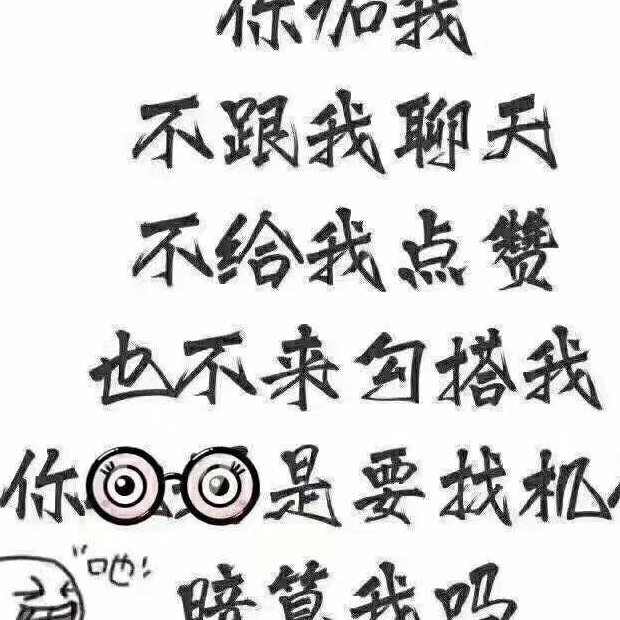 你加我
不跟我聊天
不给我点赞
也不来勾搭我
你是要找机
"吔!
暗算我吗